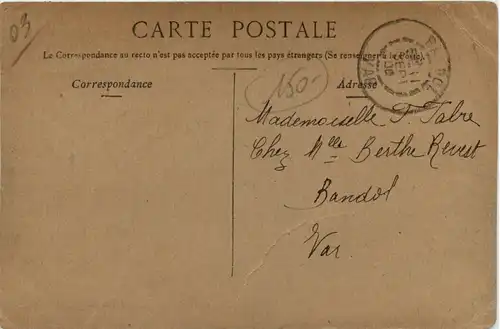 03
CARTE POSTALE
Le Correspondance au recto n'est pas acceptée par tous les pays étrangers (Se renseigner à la Poste).
Correspondance
150-
Adresse
Mademoiselle F. Fabre
Chez Mlle Berthe Revest
Bandol
Var
VAR